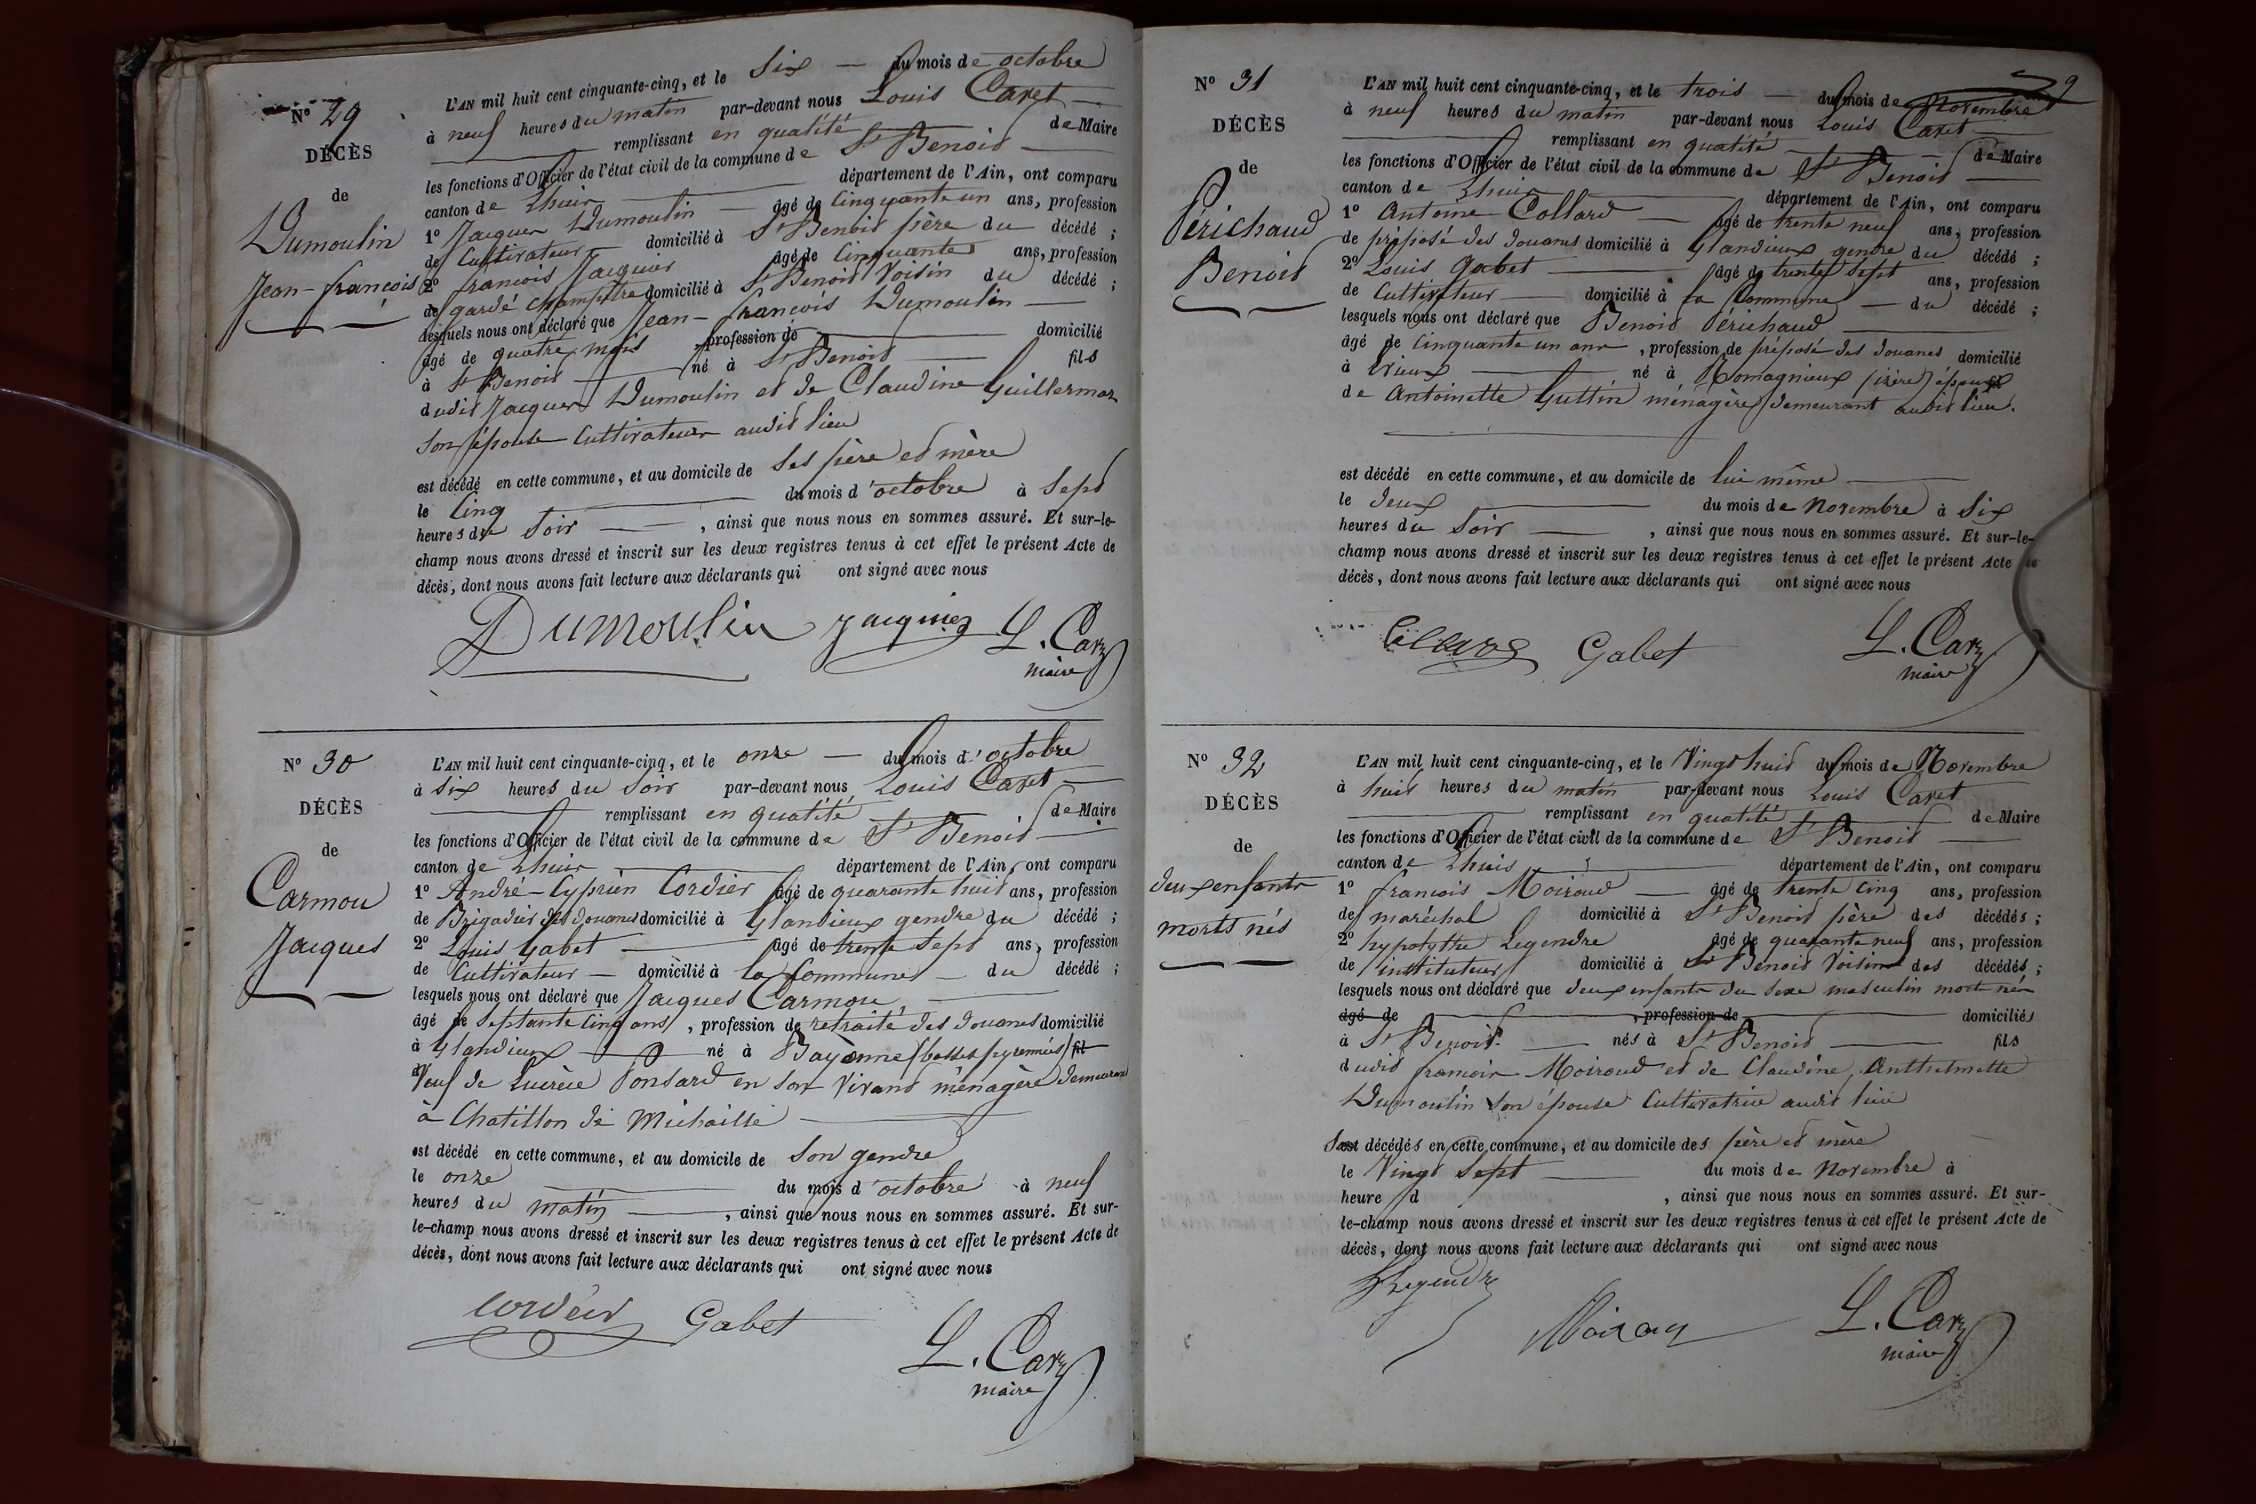 N° 29
DÉCÈS
de
Dumoulin
Jean-françois
L'AN mil huit cent cinquante-cinq, et le Six du mois de octobre
à neuf heures du matin par-devant nous Louis Caret
remplissant en qualité de Maire
les fonctions d'Officier de l'état civil de la commune de St Benoit
canton de Lhuis département de l'Ain, ont comparu
1° Jacques Dumoulin âgé de Cinquante un ans, profession
de Cultivateur domicilié à St Benoit père du décédé ;
2° françois Jacquier âgé de Cinquante ans, profession
de garde champêtre domicilié à St Benoit Voisin du décédé ;
lesquels nous ont déclaré que Jean-françois Dumoulin
âgé de quatre mois , profession de domicilié
à St Benoit né à St Benoit fils
dudit Jacques Dumoulin et de Claudine Guillermoz
Son épouse Cultivateur audit lieu
est décédé en cette commune, et au domicile de Ses père et mère
le Cinq du mois d'octobre à Sept
heures du Soir , ainsi que nous nous en sommes assuré. Et sur-le-
champ nous avons dressé et inscrit sur les deux registres tenus à cet effet le présent Acte de
décès, dont nous avons fait lecture aux déclarants qui ont signé avec nous
Dumoulin Jacquier L. Caret
maire
N° 30
DÉCÈS
de
Carmou
Jacques
L'AN mil huit cent cinquante-cinq, et le onze du mois d'octobre
à six heures du Soir par-devant nous Louis Caret
remplissant en qualité de Maire
les fonctions d'Officier de l'état civil de la commune de St Benoit
canton de Lhuis département de l'Ain, ont comparu
1° André-Cyprien Cordier âgé de quarante huit ans, profession
de Brigadier des Douanes domicilié à Glandieux gendre du décédé ;
2° Louis Gabet âgé de trente Sept ans, profession
de Cultivateur domicilié à la Commune du décédé ;
lesquels nous ont déclaré que Jacques Carmou
âgé de Septante Cinq ans , profession de retraité des Douanes domicilié
à Glandieux né à Bayonne (basses pyrennées) fil
Veuf de Lucrèce Ponsard en Son Vivant ménagère demeurant
à Chatillon de Michaille
est décédé en cette commune, et au domicile de Son gendre
le onze du mois d'octobre à neuf
heures du matin , ainsi que nous nous en sommes assuré. Et sur-
le-champ nous avons dressé et inscrit sur les deux registres tenus à cet effet le présent Acte de
décès, dont nous avons fait lecture aux déclarants qui ont signé avec nous
Cordier Gabet L. Caret
maire
N° 31
DÉCÈS
de
Périchaud
Benoit
L'AN mil huit cent cinquante-cinq, et le trois du mois de Novembre
à neuf heures du matin par-devant nous Louis Caret
remplissant en qualité de Maire
les fonctions d'Officier de l'état civil de la commune de St Benoit
canton de Lhuis département de l'Ain, ont comparu
1° Antoine Collard âgé de trente neuf ans, profession
de préposé des Douanes domicilié à Glandieux gendre du décédé ;
2° Louis Gabet âgé de trente Sept ans, profession
de Cultivateur domicilié à la Commune du décédé ;
lesquels nous ont déclaré que Benoit Périchaud
âgé de Cinquante un ans , profession de préposé des Douanes domicilié
à né à Romagnieux (isère) époux
de Antoinette Guttin ménagère demeurant audit lieu.
est décédé en cette commune, et au domicile de lui même
le Deux du mois de Novembre à Six
heures du Soir , ainsi que nous nous en sommes assuré. Et sur-le-
champ nous avons dressé et inscrit sur les deux registres tenus à cet effet le présent Acte de
décès, dont nous avons fait lecture aux déclarants qui ont signé avec nous
Gabet L. Caret
maire
N° 32
DÉCÈS
de
deux enfants
morts nés
L'AN mil huit cent cinquante-cinq, et le Vingt huit du mois de Novembre
à huit heures du matin par-devant nous Louis Caret
remplissant en qualité de Maire
les fonctions d'Officier de l'état civil de la commune de St Benoit
canton de Lhuis département de l'Ain, ont comparu
1° françois Moiroud âgé de trente Cinq ans, profession
de maréchal domicilié à St Benoit père des décédés ;
2° hypolythe Legendre âgé de quarante neuf ans, profession
de instituteur domicilié à St Benoit Voisin des décédés ;
lesquels nous ont déclaré que deux enfants du Sexe masculin morts nés
âgé de , profession de domiciliés
à St Benoit nés à St Benoit fils
dudit françois Moiroud et de Claudine Anthelmette
Dumoulin Son épouse Cultivatrice audit lieu
Sont décédés en cette commune, et au domicile des père et mère
le Vingt Sept du mois de Novembre à
heure d , ainsi que nous nous en sommes assuré. Et sur-
le-champ nous avons dressé et inscrit sur les deux registres tenus à cet effet le présent Acte de
décès, dont nous avons fait lecture aux déclarants qui ont signé avec nous
Legendre
Moiroud L. Caret
maire